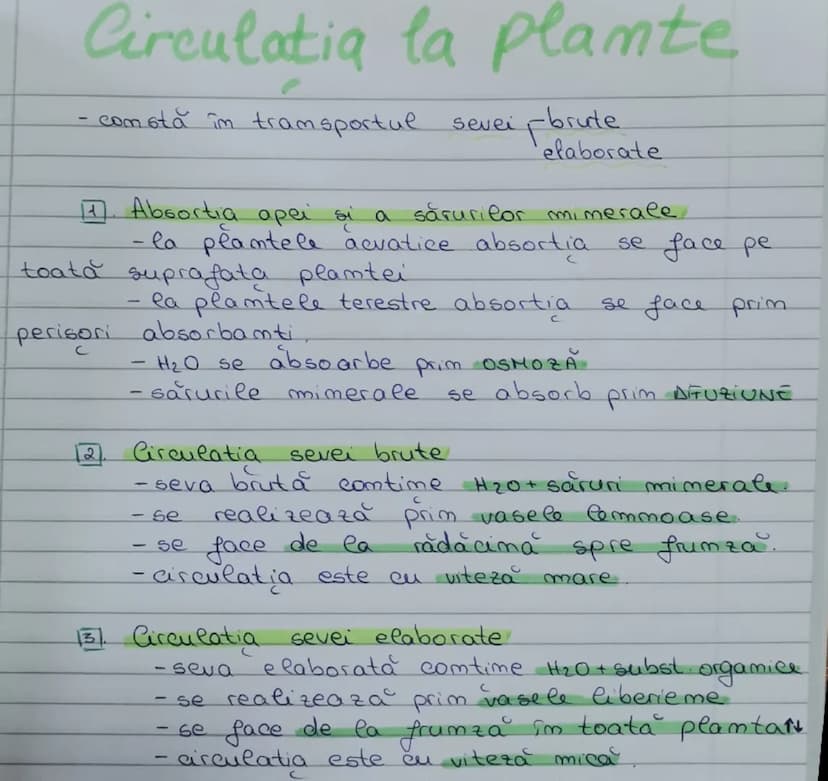 Circulația la plante
- constă în transportul sevei brute
elaborate
1. Absorția apei și a sărurilor minerale
- la plantele acvatice absorția se face pe
toată suprafața plantei
- la plantele terestre absorția se face prin
perișori absorbanți.
- H2O se absoarbe prin OSMOZĂ
- sărurile minerale se absorb prin DIFUZIUNE
2. Circulația sevei brute
- seva brută conține H2O + săruri minerale.
- se realizează prin vasele lemnoase.
- se face de la rădăcină spre frunză.
- circulația este cu viteză mare
3. Circulația sevei elaborate
- seva elaborată conține H2O + subst. organice
- se realizează prin vasele liberiene
- se face de la frunză în toată planta ↑↓
- circulația este cu viteză mică